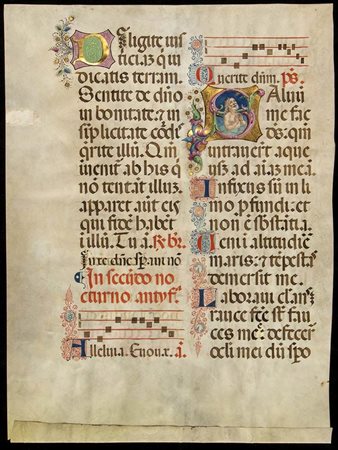 Deligite ius
ticiaz qui iu
dicatis terram.
Sentite de dño
in bonitate: & in
siplicitate cordis
qrite illuz. Qm
inuenit̃ ab his q
no tentat illuz.
apparet aut eis
qui fidez habẽt
i illũ. Tu a. Rbr.
Iuxe dñe sp aui nõ
In secũdo no
cturno antyf.
Alleluia. Euouae. a.
Querite dñm. ps.
Saluũ
me fac
dez: qm̃
intrauert̃ aque
usq ad aiaz meã.
Infixus sũ in li
mo p̃fundi: et
non ẽ sbstãtia.
Ueni i altitudiẽ
maris: et tẽpestas
demersit me.
Laboraui clamãs
rauce fcẽ st fau
ces meẽ: defecert̃
oculi mei dũ spo